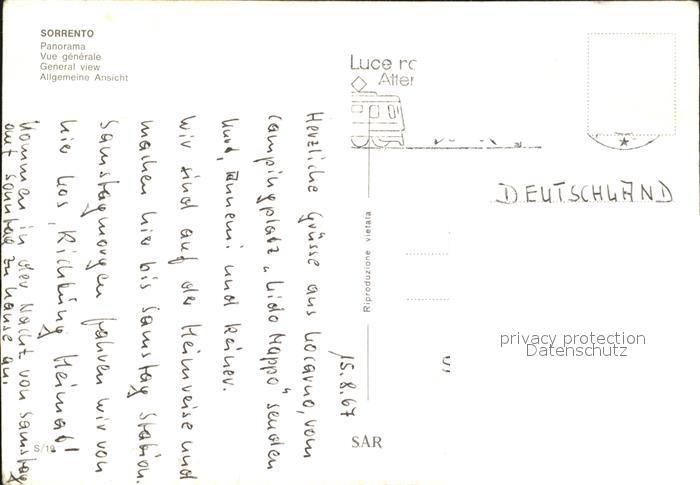 SORRENTO
Panorama
Vue générale
General view
Allgemeine Ansicht
Luce ro
Atter
DEUTSCHLAND
Riproduzione vietata
privacy protection
Datenschutz
SAR
S/19
15.8.67
Herzliche Grüsse aus Locarno, vom
Campingplatz „Lido Mappo" senden
Kurd, Annemi und Reiner.
Wir sind auf der Heimreise und
machen hier bis Samstag Station.
Samstagmorgen fahren wir von
hier los, Richtung Heimat!
Kommen in der Nacht von Samstag
auf Sonntag zu Hause an.